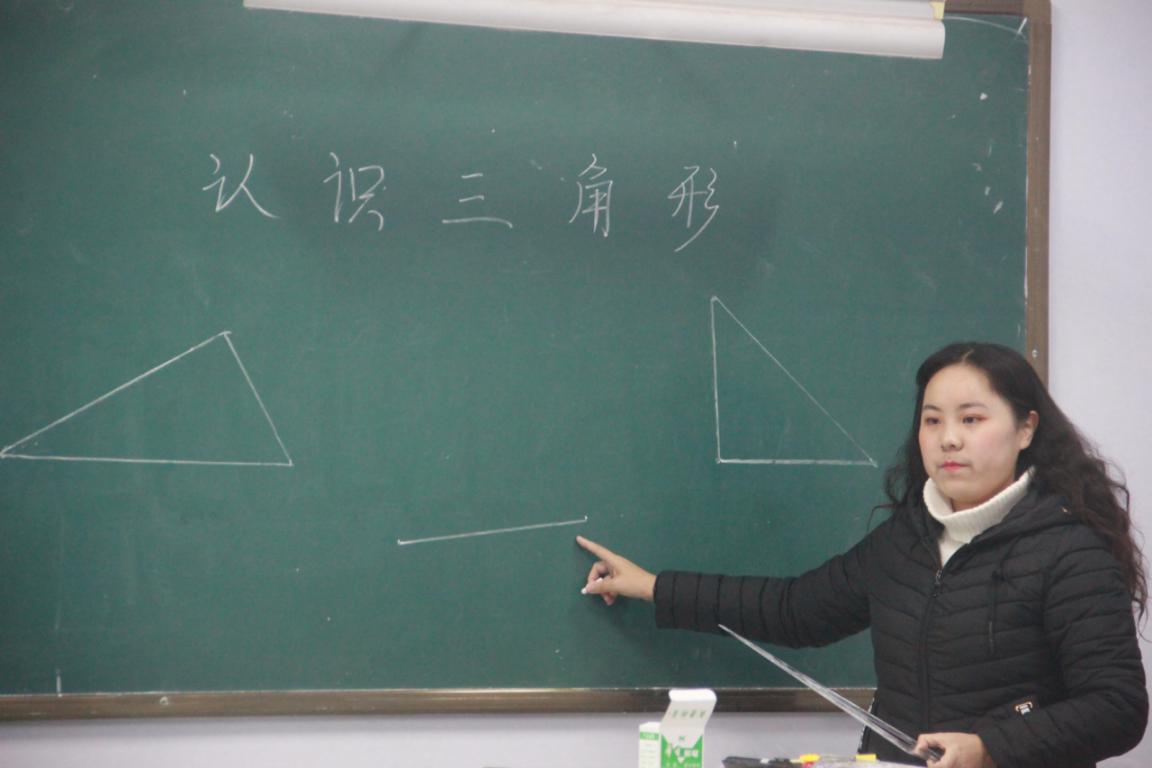 认识三角形